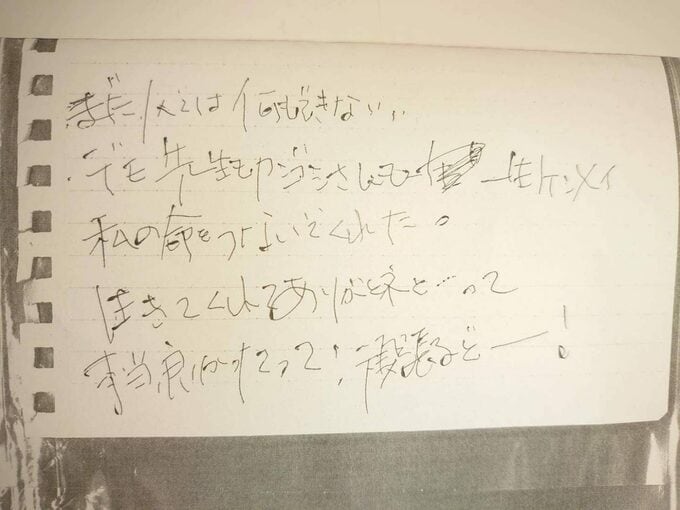 まだ1人では何もできない..
デモ先生もカンゴシさんも一生ケンメイ
私の命をつないでくれた。
生きててくれてありがとネと…って
本当良かったって!頑張るどー!